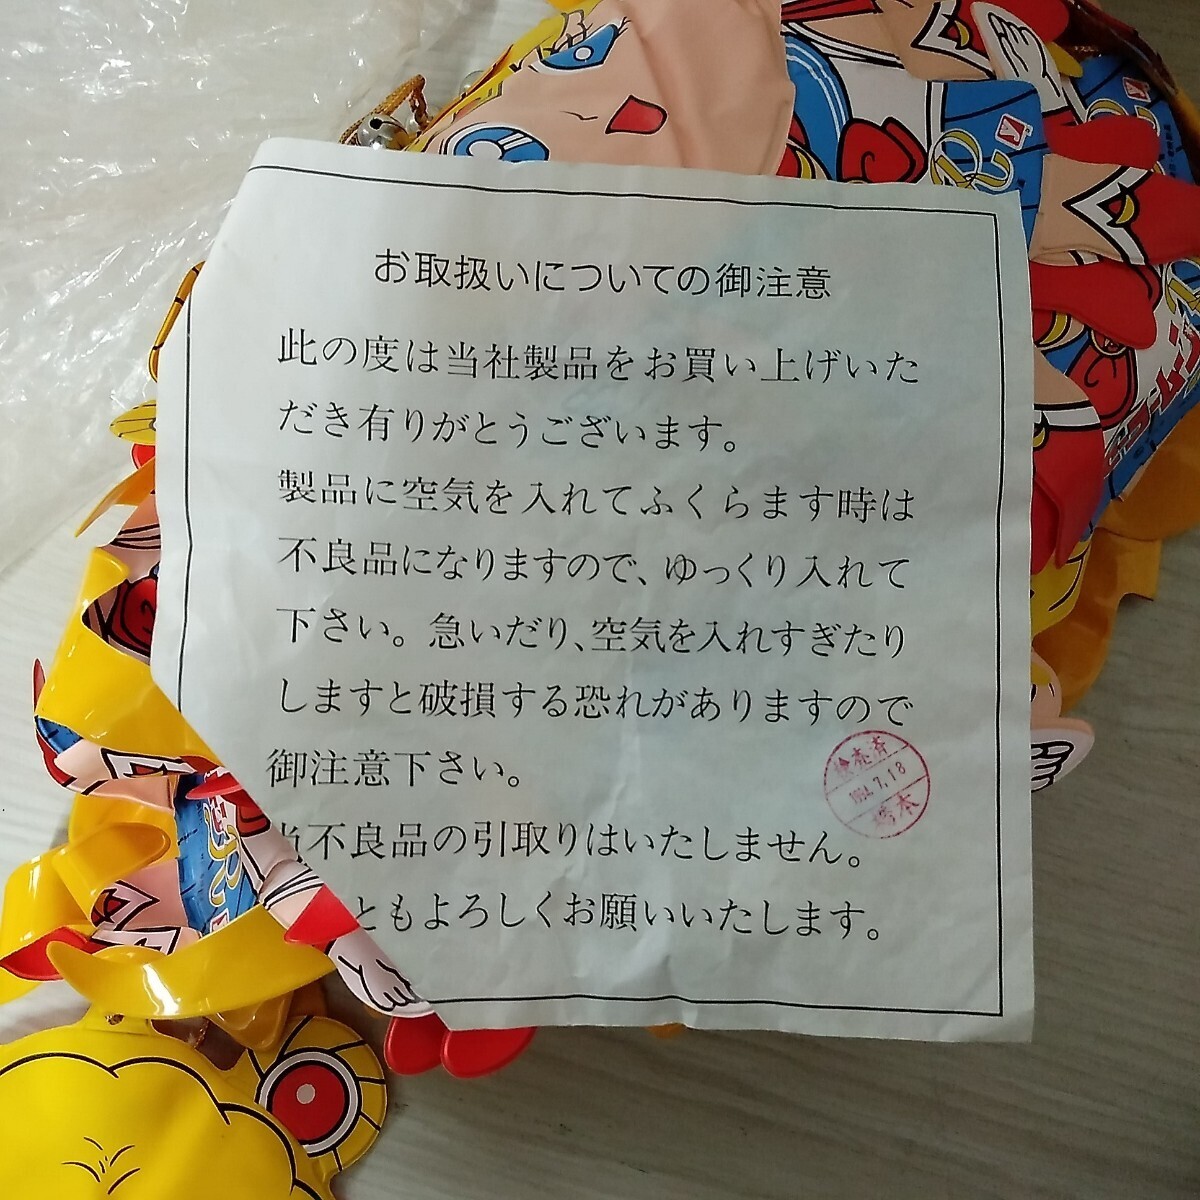 お取扱いについての御注意
此の度は当社製品をお買い上げいた
だき有りがとうございます。
製品に空気を入れてふくらます時は
不良品になりますので、ゆっくり入れて
下さい。急いだり、空気を入れすぎたり
しますと破損する恐れがありますので
御注意下さい。
不良品の引取りはいたしません。
ともよろしくお願いいたします。
1994.7.18